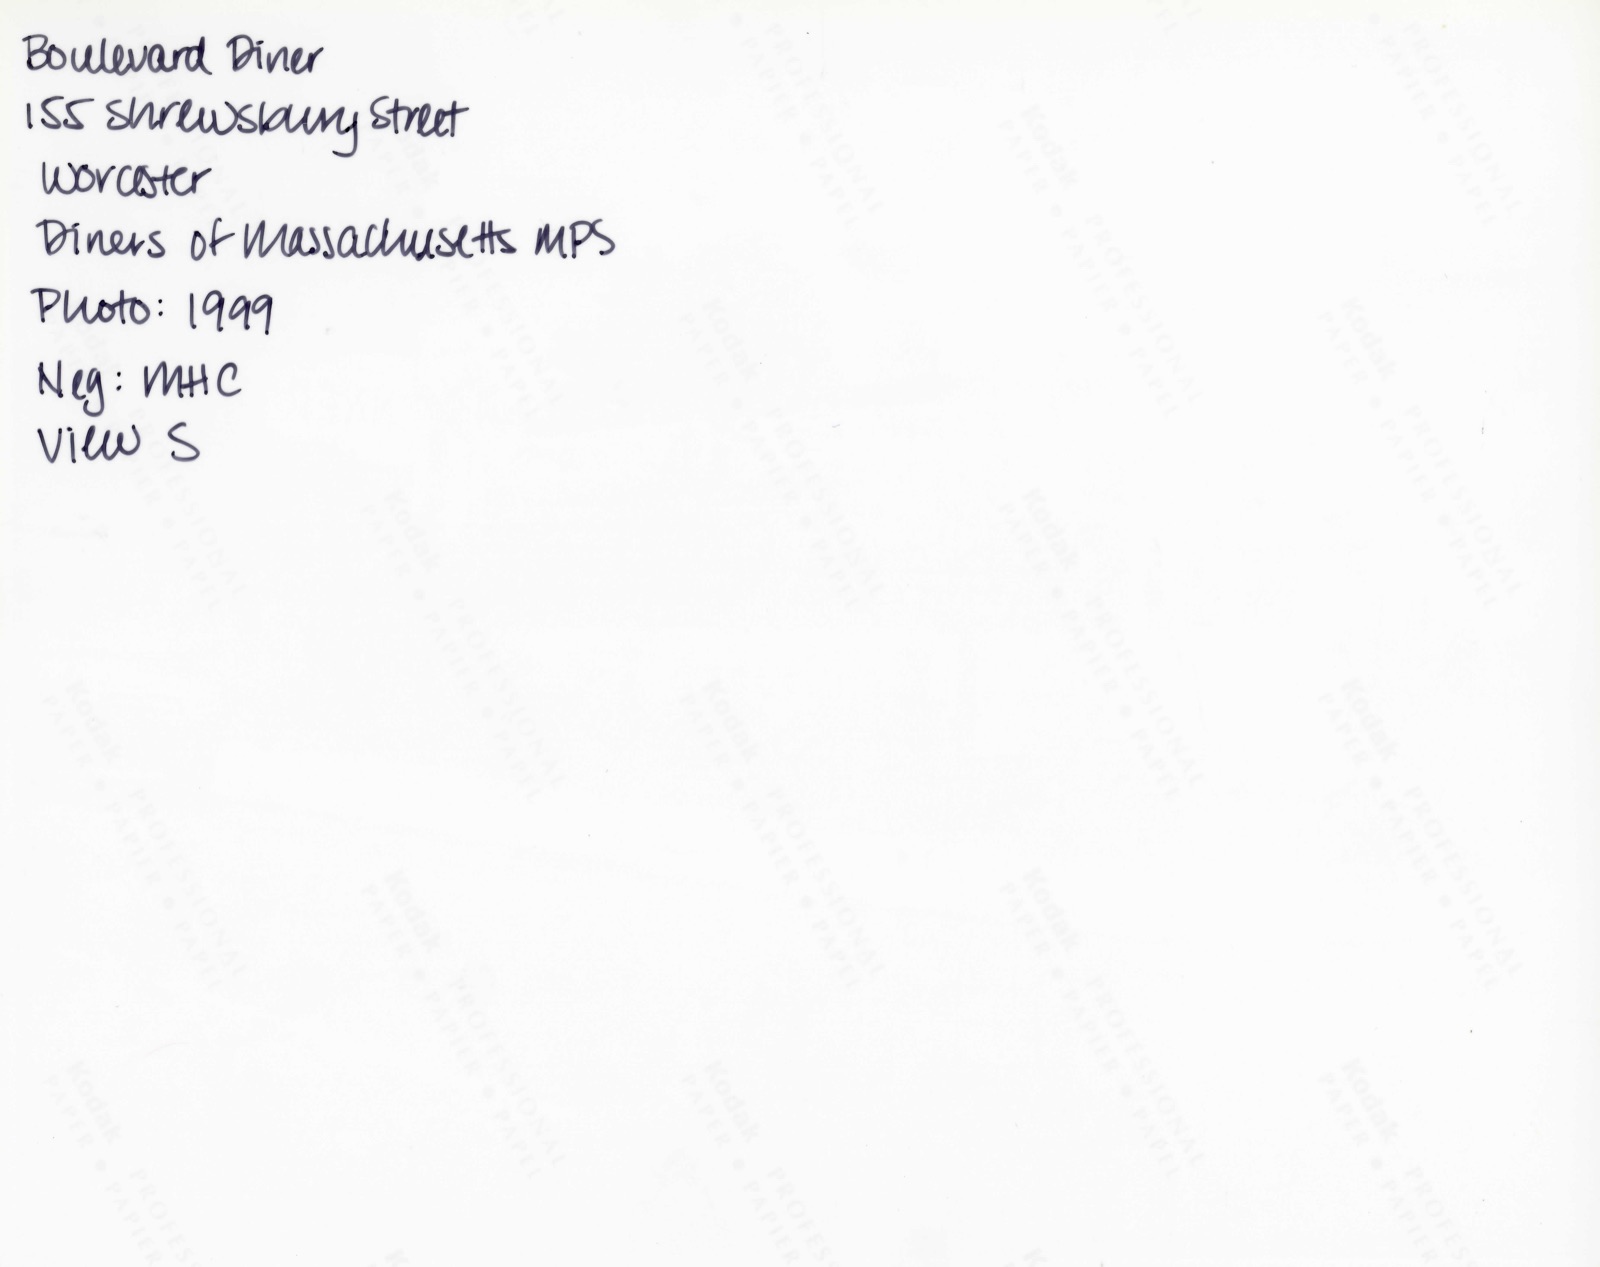 Boulevard Diner
155 Shrewsbury Street
Worcester
Diners of Massachusetts MPS
Photo: 1999
Neg: MHC
View S
Kodak PROFESSIONAL
PAPIER • PAPEL